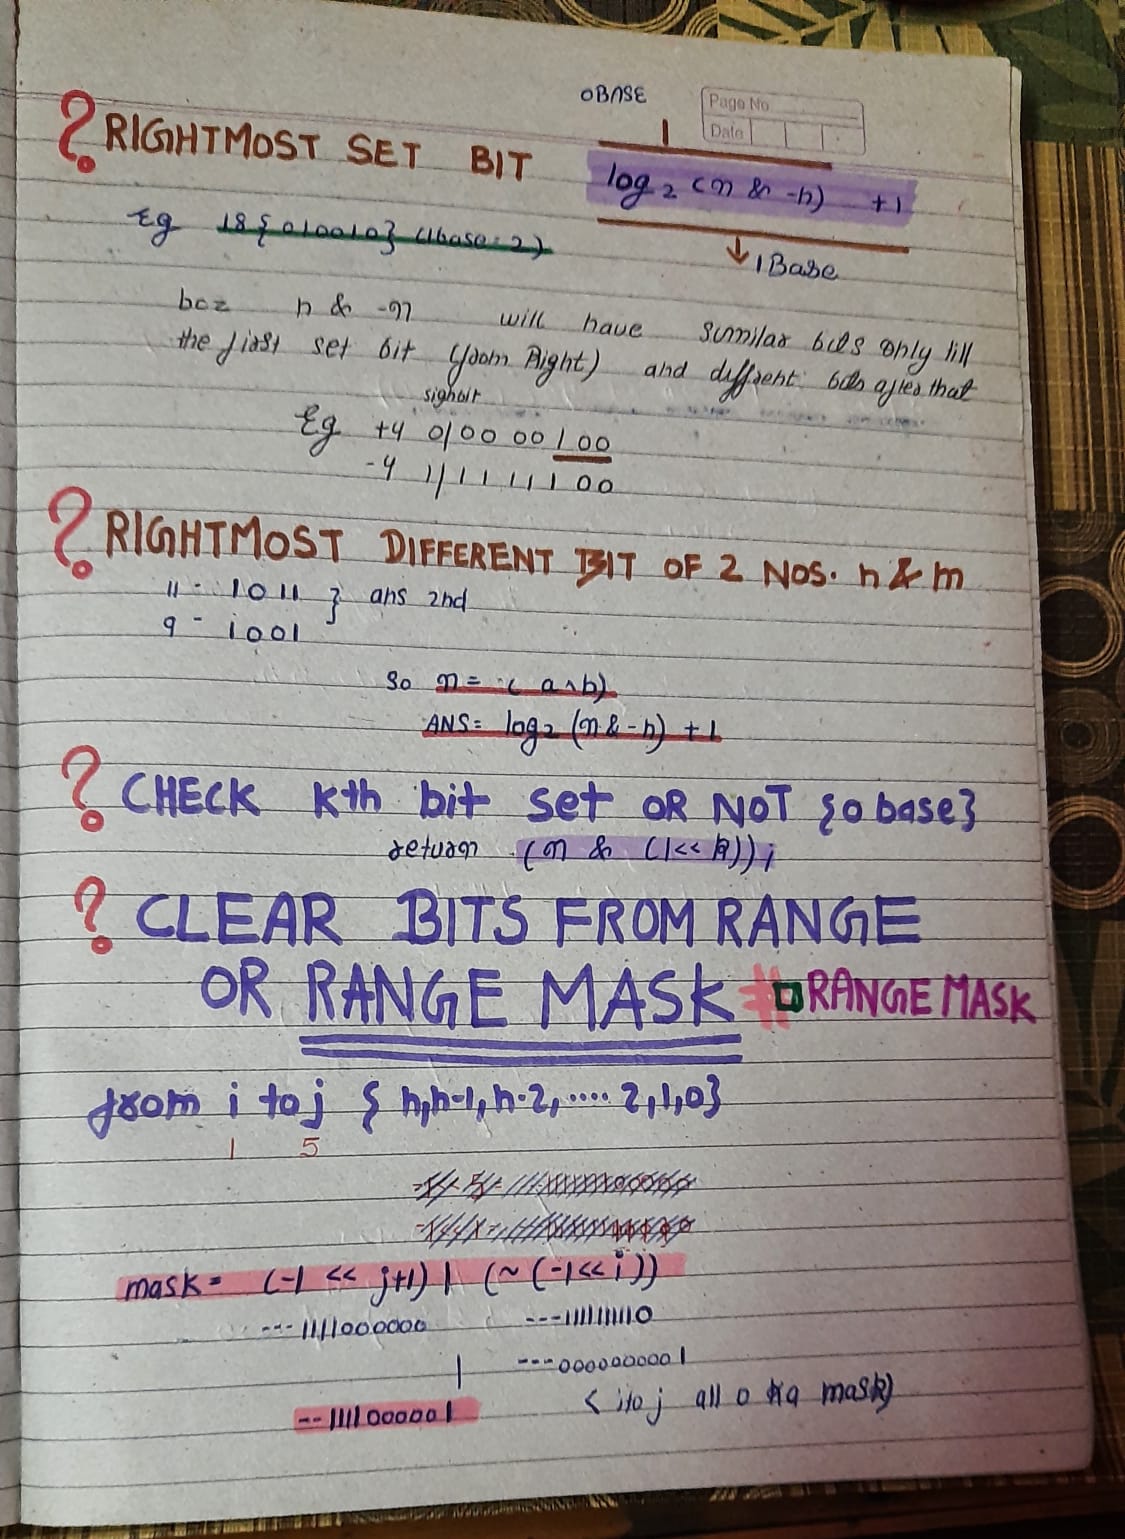 0BASE
Page No.
Date
? RIGHTMOST SET BIT
log₂ (n & -n) +1
Eg 18 {010010} (1base: 2)
↓ 1Base
bcz n & -n will have similar bits only till
the first set bit (from Right) and diffrent bits after that
signbit
Eg +4 0/00 00 100
-4 1/1 1 1 1 1 00
? RIGHTMOST DIFFERENT BIT OF 2 NOS. n & m
11 - 1011 } ans 2nd
9 - 1001
So n = (a^b)
ANS= log₂ (n & -n) +1
? CHECK Kth bit set OR NOT {0 base}
return (n & (1<< k));
? CLEAR BITS FROM RANGE
OR RANGE MASK # RANGE MASK
from i to j { n,n-1,n-2,.... 2,1,0}
1 5
mask = (-1 << j+1) | (~(-1<<i))
---1111000000 ---111111110
| ---0000000001
--1111000001 < i to j all 0 ka mask)